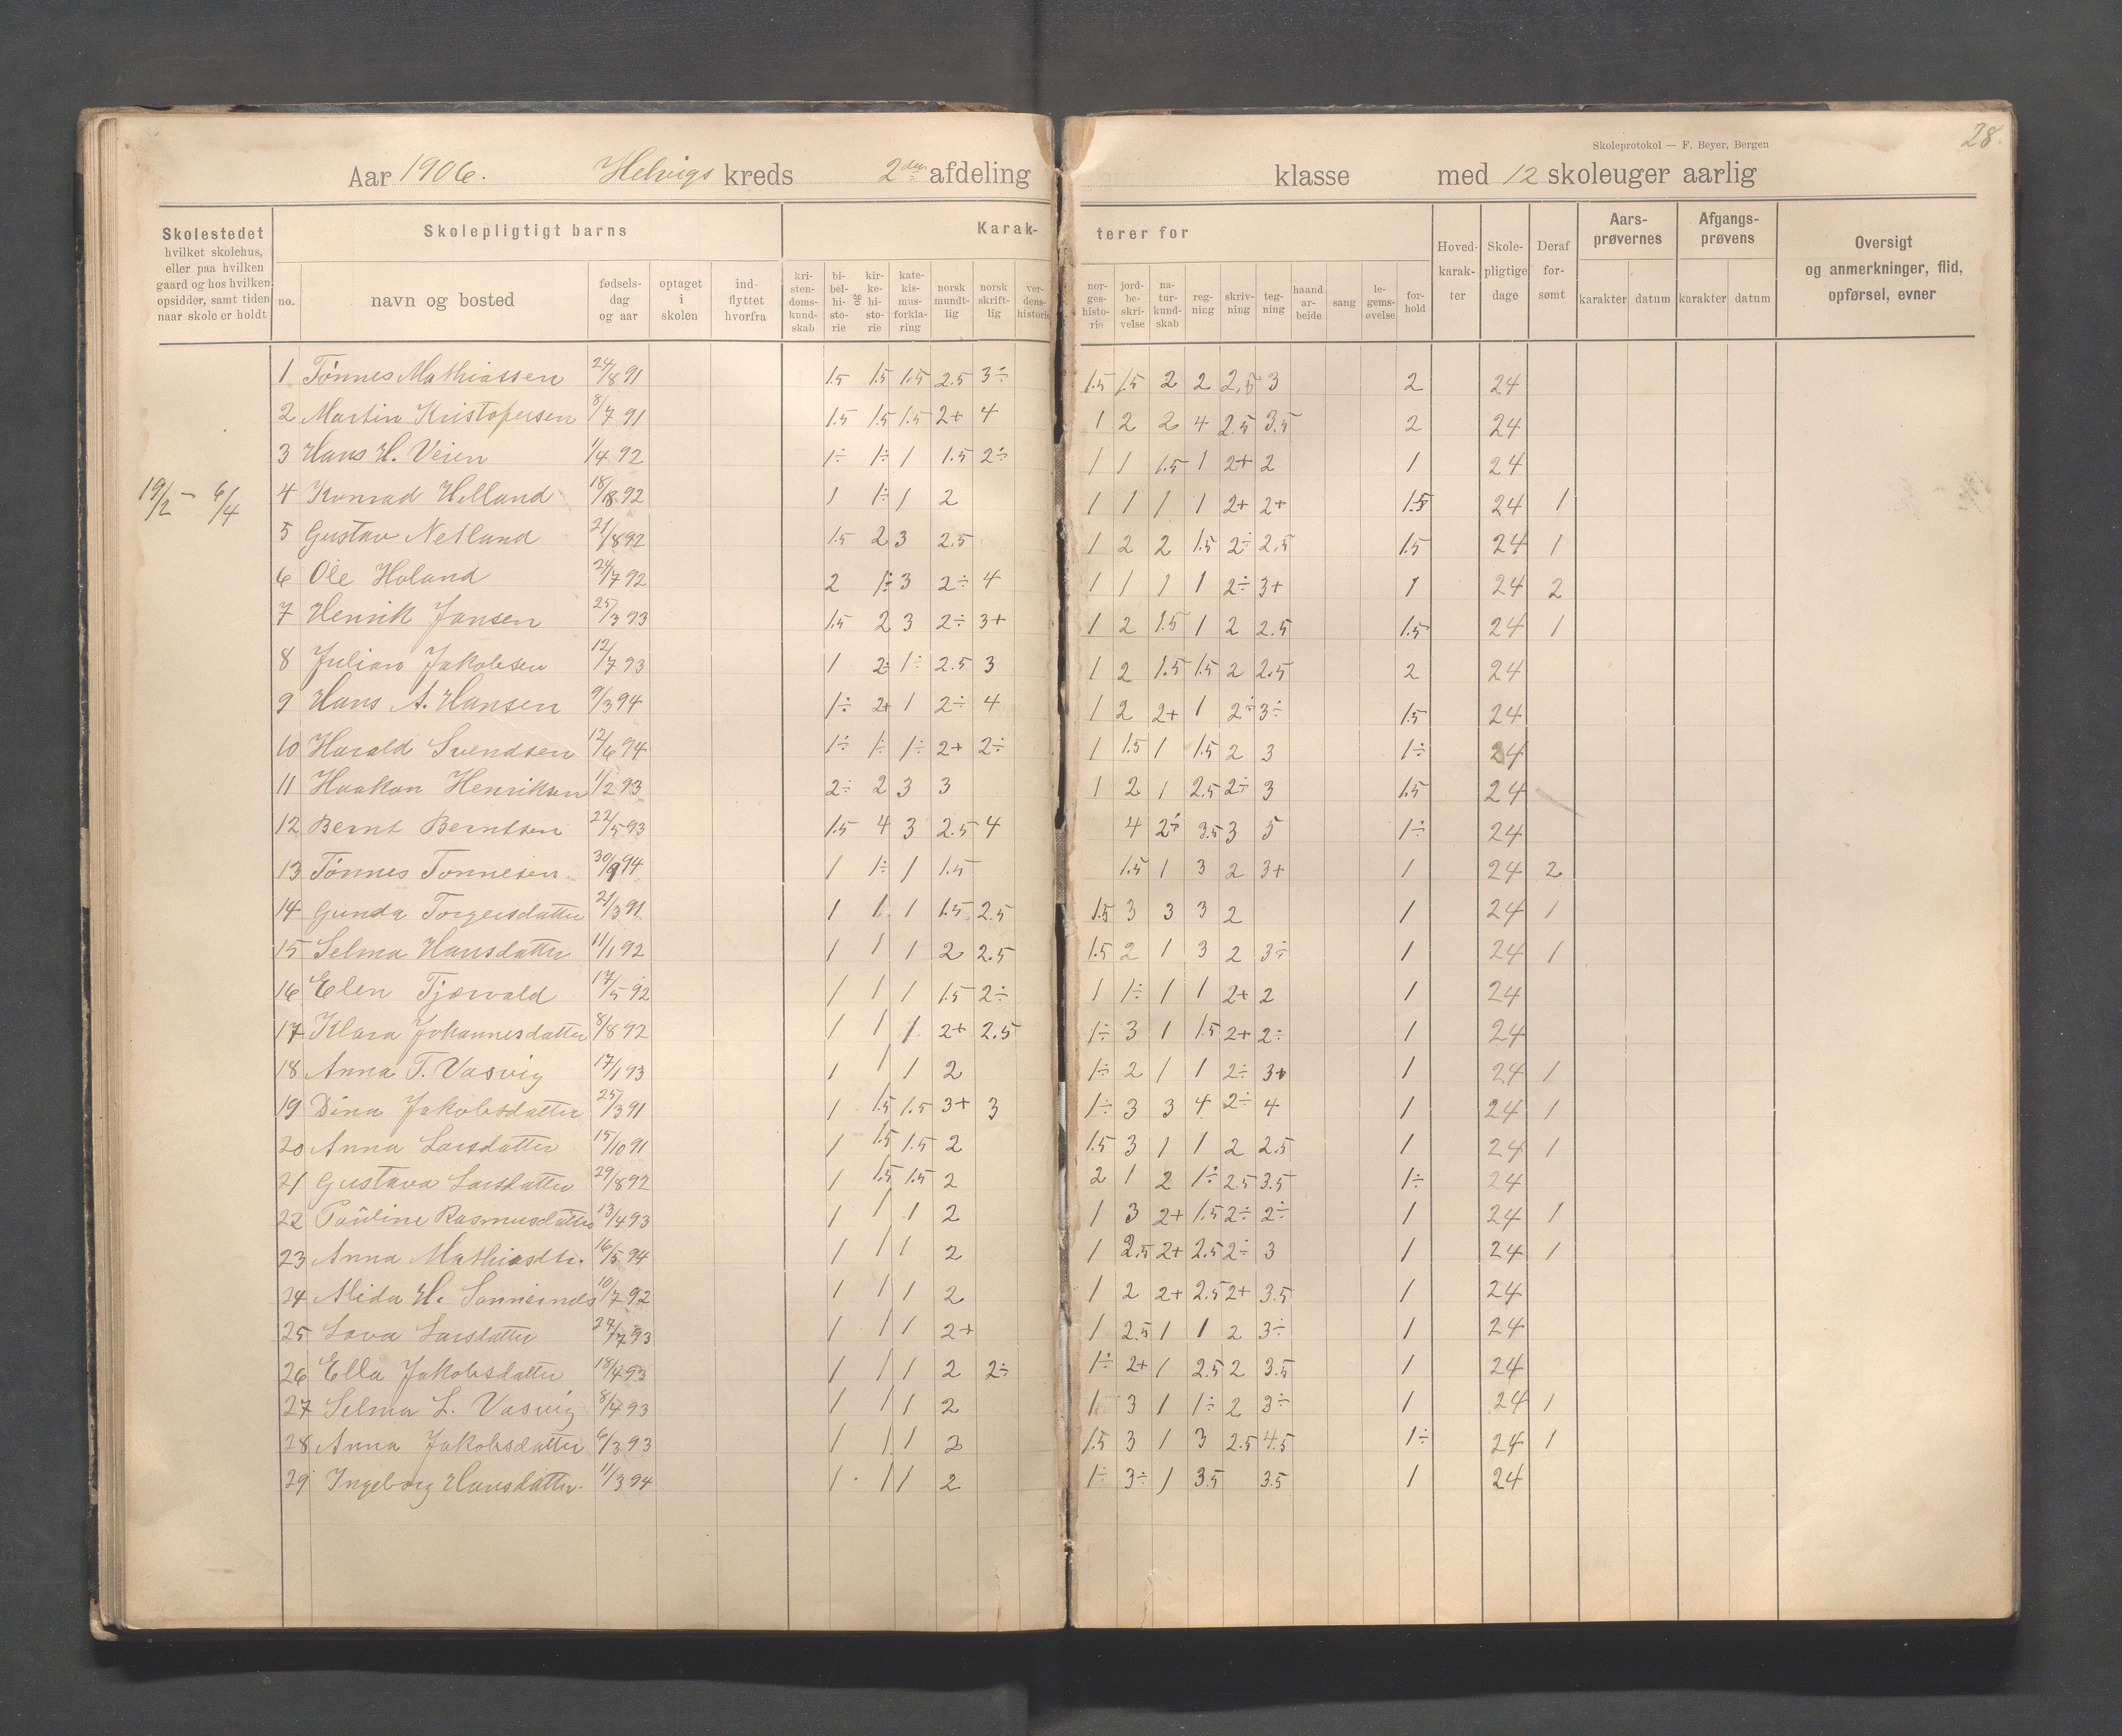 28.
Skoleprotokol — F. Beyer, Bergen
Aar 1906. Helvigs kreds 2den afdeling klasse med 12 skoleuger aarlig
Skolestedet hvilket skolehus, eller paa hvilken gaard og hos hvilken opsidder, samt tiden naar skole er holdt
Skolepligtigt barns
no. navn og bosted fødsels-dag og aar optaget i skolen ind-flyttet hvorfra
Karak-terer for
kri-sten-doms-kund-skab bi-bel-hi-sto-rie og kir-ke-hi-sto-rie kate-kis-mus-forkla-ring norsk mundt-lig norsk skrift-lig ver-dens-historie nor-ges-histo-rie jord-be-skri-velse na-tur-kund-skab reg-ning skriv-ning teg-ning haand ar-beide sang le-gems-øvelse for-hold
Hoved-karak-ter Skole-pligtige dage Deraf for-sømt
Aars-prøvernes karakter datum
Afgangs-prøvens karakter datum
Oversigt og anmerkninger, flid, opførsel, evner
19/2 - 6/4
1 Tönnes Mathiassen 24/8 91 1.5 1.5 1.5 2.5 3÷ 1.5 1.5 2 2 2,5 3 2 24
2 Martin Kristofersen 8/7 91 1.5 1.5 1.5 2+ 4 1 2 2 4 2.5 3.5 2 24
3 Hans H. Veien 1/4 92 1÷ 1÷ 1 1.5 2÷ 1 1 1.5 1 2+ 2 1 24
4 Konrad Helland 92 1 1÷ 1 2 1 1 1 1 2+ 2+ 1.5 24 1
5 Gustav Netland 21/8 92 1.5 2 3 2.5 1 2 2 1.5 2÷ 2,5 1.5 24 1
6 Ole Holand 24/7 92 2 1÷ 3 2÷ 4 1 1 1 1 2÷ 3+ 1 24 2
7 Henrik Jansen 25/3 93 1.5 2 3 2÷ 3+ 1 2 1.5 1 2 2.5 1.5 24 1
8 Julian Jakobsen 12/7 93 1 2÷ 1÷ 2.5 3 1 2 1.5 1.5 2 2.5 2 24
9 Hans A. Hansen 9/3 94 1÷ 2+ 1 2÷ 4 1 2 2+ 1 2÷ 3÷ 1.5 24
10 Harald Svendsen 12/6 94 1÷ 1÷ 1÷ 2+ 2÷ 1 1.5 1 1.5 2 3 1÷ 24
11 Haakon Henriksen 1/2 93 2÷ 2 3 3 1 2 1 2.5 2÷ 3 1.5 24
12 Bernt Berntsen 22/5 93 1.5 4 3 2.5 4 4 2÷ 3.5 3 5 1÷ 24
13 Tönnes Tonnesen 30/9 94 1 1÷ 1 1.5 1.5 1 3 2 3+ 1 24 2
14 Gunda Torgersdatter 21/3 91 1 1 1 1.5 2.5 1.5 3 3 3 2 1 24 1
15 Selma Hansdatter 11/1 92 1 1 1 2 2.5 1.5 2 1 3 2 3÷ 1 24 1
16 Elen Tjørvald 17/5 92 1 1 1 1.5 2÷ 1 1÷ 1 1 2+ 2 1 24
17 Klara Johannesdatter 8/8 92 1 1 1 2+ 2.5 1÷ 3 1 1.5 2+ 2÷ 1 24
18 Anna T. Vasvig 17/1 93 1 1 1 2 1÷ 2 1 1 2÷ 3+ 1 24 1
19 Dina Jakobsdatter 25/3 91 1 1.5 1.5 3+ 3 1÷ 3 3 4 2÷ 4 1 24 1
20 Anna Larsdatter 15/10 91 1 1.5 1.5 2 1.5 3 1 1 2 2.5 1 24 1
21 Gustava Larsdatter 29/8 92 1 1.5 1.5 2 2 1 2 1÷ 2.5 3.5 1÷ 24
22 Pauline Rasmusdatter 13/4 93 1 1 1 2 1 3 2+ 1.5 2÷ 2÷ 1 24 1
23 Anna Mathiasdtr. 16/5 94 1 1 1 2 1 2.5 2+ 2.5 2÷ 3 1 24 1
24 Alida H. 10/7 92 1 1 1 2 1 2 2+ 2.5 2+ 3.5 1 24
25 Lova Larsdatter 27/7 93 1 1 1 2+ 1 2.5 1 1 2 3÷ 1 24
26 Ella Jakobsdatter 18/4 93 1 1 1 2 2÷ 1÷ 2+ 1 2.5 2 3.5 1 24
27 Selma L. Vasvig 8/4 93 1 1 1 2 1 3 1 1÷ 2 3÷ 1 24 1
28 Anna Jakobsdatter 6/3 93 1 1 1 2 1.5 3 1 3 2.5 4.5 1÷ 24 1
29 Ingeborg Hansdatter. 11/3 94 1 1 1 2 1÷ 3÷ 1 3.5 3.5 1 24